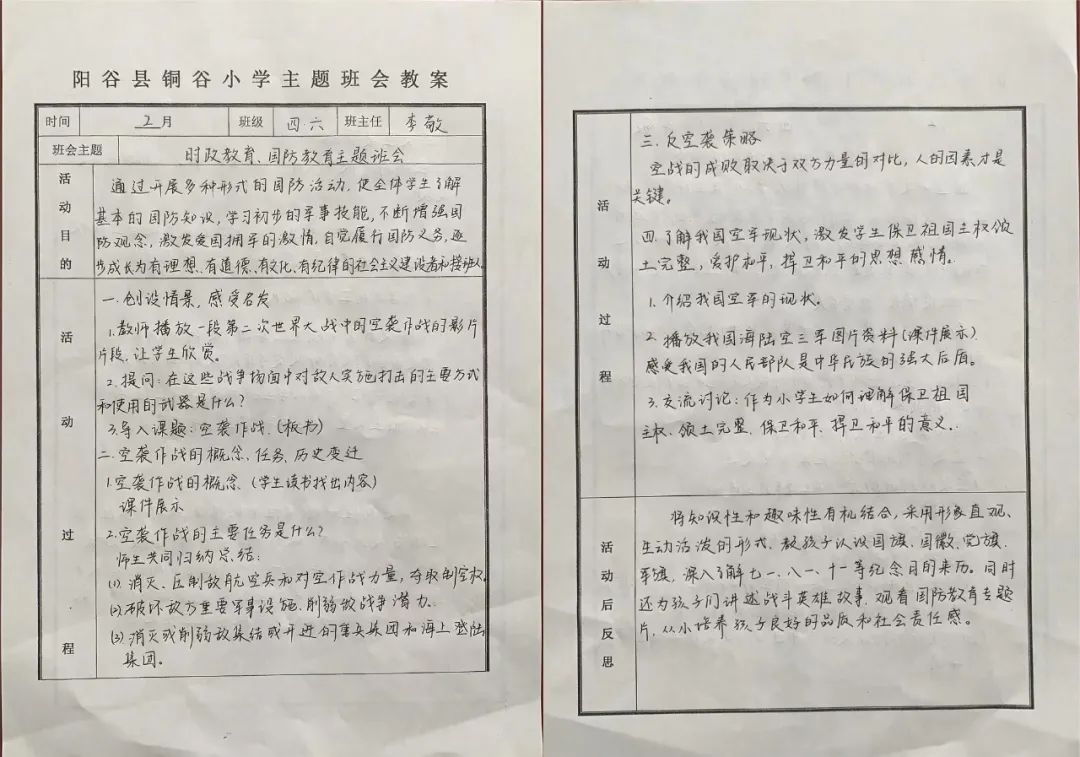 阳谷县铜谷小学主题班会教案
时间 2月 班级 四六 班主任 李敬
班会主题 时政教育、国防教育主题班会
活动目的
通过开展多种形式的国防活动，使全体学生了解
基本的国防知识，学习初步的军事技能，不断增强国
防观念，激发爱国拥军的激情，自觉履行国防义务，逐
步成长为有理想、有道德、有文化、有纪律的社会主义建设者和接班人。
活动过程
一.创设情景，感受名发
1.教师播放一段第二次世界大战中的空袭作战的影片
片段，让学生欣赏。
2.提问：在这些战争场面中对敌人实施打击的主要方式
和使用的武器是什么？
3.导入课题：空袭作战.（板书）
二.空袭作战的概念、任务、历史变迁
1.空袭作战的概念、（学生读书找出内容）
课件展示
2.空袭作战的主要任务是什么？
师生共同归纳总结：
(1) 消灭、压制敌航空兵和对空作战力量，夺取制空权。
(2)破坏敌方重要军事设施、削弱敌战争潜力.
(3)消灭或削弱敌集结或开进的重兵集团和海上登陆
集团。
活动过程
三.反空袭策略
空战的成败取决于双方力量的对比，人的因素才是
关键。
四.了解我国空军现状，激发学生保卫祖国主权领
土完整，爱护和平，捍卫和平的思想感情。
1.介绍我国空军的现状。
2.播放我国海陆空三军图片资料（课件展示）
感受我国的人民部队是中华民族的强大后盾。
3.交流讨论：作为小学生如何理解保卫祖国
主权、领土完整、保卫和平、捍卫和平的意义.
活动后反思
将知识性和趣味性有机结合，采用形象直观、
生动活泼的形式、教孩子认识国旗、国徽、党旗、
军旗，深入了解七一、八一、十一等纪念日的来历。同时
还为孩子们讲述战斗英雄故事、观看国防教育专题
片，从小培养孩子良好的品质和社会责任感。